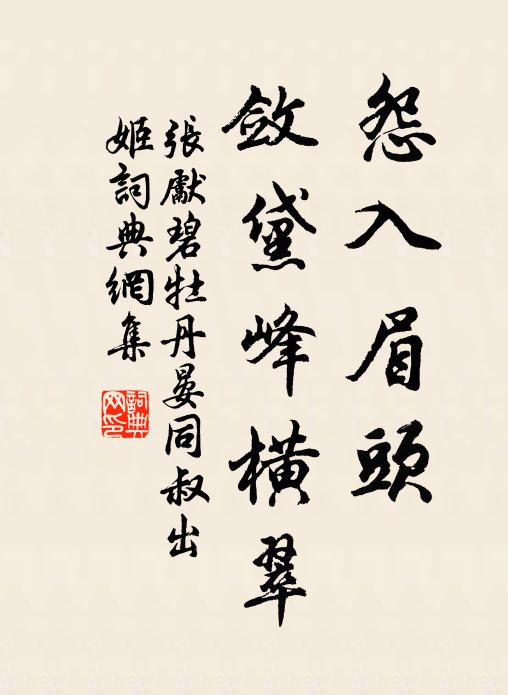 怨入眉頭
斂黛峰橫翠
張獻碧牡丹晏同叔出
姬詞典網集
詞典
网印